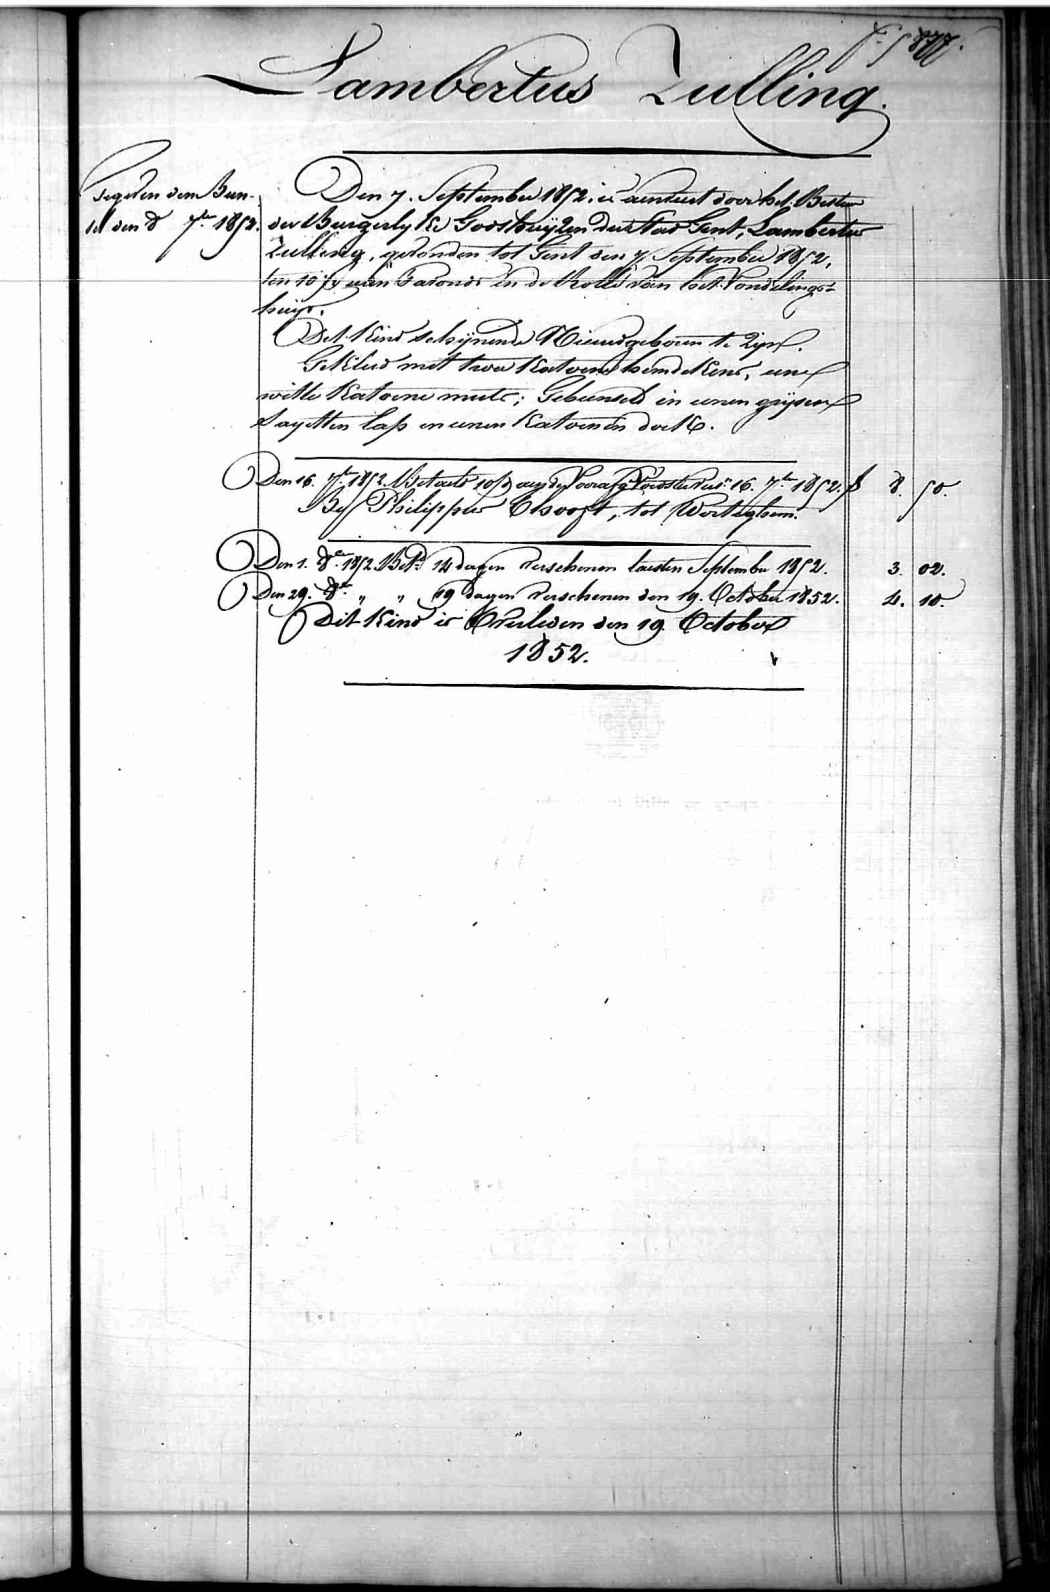 Lambertus Zulling.
den 8 7bre 1852.
Den 7. September 1852. is aenveert door het Bestier
der Burgerlyke Godshuijzen der Stad Gent, Lambertus
Zulling, gevonden tot Gent den 7 September 1852,
ten 10 ure 'savonds in de Rolle van het Vondelings=
huijs.
Het Kind schijnende Nieuwgeboren te Zijn.
Gekleed met twee Katoene hemdekens, eene
witte Katoene muts; Gebunseld in eenen grijsen
Sayetten lap en eenen Katoenen doek.
Den 16. 7bre 1852. Betaeld 16. 7bre 1852. f 8. 50.
By Philippus Thooft, tot Worteghem.
Den 1. 8bre 1852. Betd 14 dagen verschenen laesten September 1852. 3. 02.
Den 29. 8bre " " 19 dagen verschenen den 19. October 1852. 4. 10.
Dit Kind is Overleden den 19. October
1852.